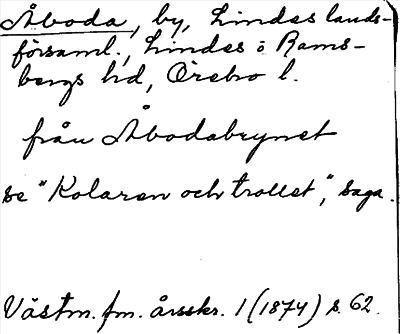 Åboda, by, Lindes lands-
församl., Lindes o Rams-
bergs hd, Örebro l.
från Åbodabrynet
se "Kolaren och trollet", saga.
Västm. fm. årsskr. 1 (1874) s. 62.